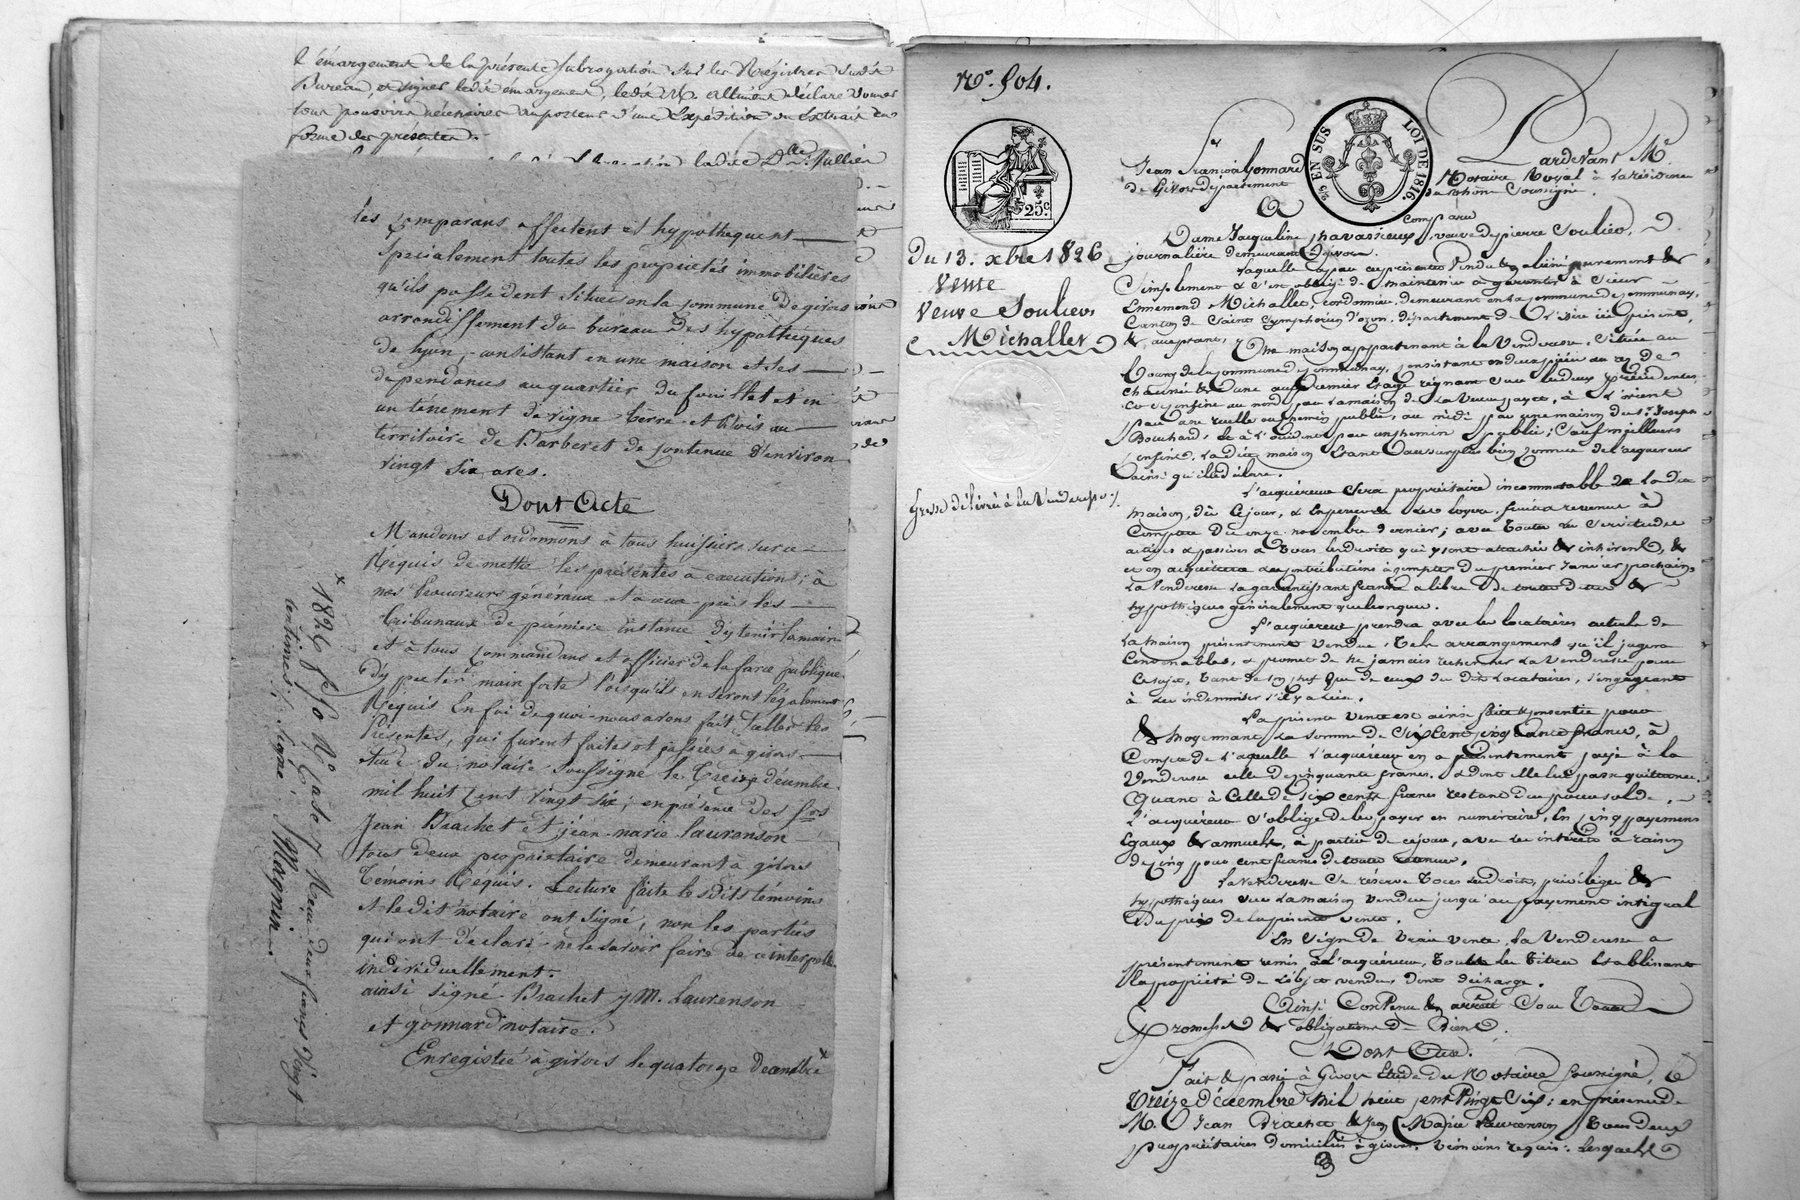 l'émargement de la présente subrogation sur les Registres dudit
Bureau, et signer ledit émargement, ledit M. déclare donner
tous pouvoirs nécessaires au porteur d'une Expédition ou Extrait en
forme des présentes.
ladite Dlle Jullien
les Comparans affectent et hypothequent
spécialement toutes les propriétés immobilières
qu'ils possédent situés en la commune de givors
arrondissement du bureau des hypothèques
de Lyon, consistant en une maison et ses
dependances au quartier du et en
un ténement de vigne Terre et Bois au
térritoire de Barberet de Contenue d'environ
vingt six ares.
Dont Acte
Mandons et ordonnons à tous huissiers sur ce
Réquis de mettre les présentes à execution; à
nos Procureurs généraux et a ceux près les
Tribunaux de première instance d'y tenir la main
et à tous Commandans et officier de la force publique
d'y preter main forte lorsqu'ils en seront légalement
Requis En foi de quoi nous avons fait sceller les
Présentes, qui furent faites et passées a givors
étude du notaire soussigné le Treize décembre
mil huit Cent vingt six; en présence des srs
Jean Brachet et jean-marie laurenson
tous deux propriétaire demeurant à givors
Temoins Réquis. Lecture faite lesdits témoins
et ledit notaire ont signé, non les parties
qui ont déclaré ne le savoir faire de ce interpellé
individuellement.
ainsi signé Brachet j M. Laurenson
et gonnard notaire.
Enregistré à givors le quatorze Decembre
x 1826 fo 50 Ro Case 7 Recu deux francs Vingt
centimes. Signé: Magnin.
No. 504.
25c.
2/5 EN SUS LOI DE 1816.
Pardevant Me
Jean François Gonnard Notaire Royal à la résidence
de Givors département du Rhône Soussigné.
A Comparu
Du 13. xbre 1826
Vente
Veuve Soulier
à Michallet
Grosse délivrée à la Venderesse
Dame Jacqueline Chavassieux, veuve de pierre Soulier,
journalière demeurant à Givors.
Laquelle a par ces présentes Vendu & aliéné purement &
Simplement & s'est obligé de maintenir & garantir à Sieur
Ennemond Michallet, cordonnier, demeurant en la Commune de Communay,
Canton de Saint Symphorien d'ozon, département de l'Isère ici présent,
& acceptant,
Une maison appartenant à la Venderesse, Située au
bourg de la Commune de Communay, Consistant en deux pièces au rez de
chaussée & d'une au Premier Etage régnant Sur les deux précédentes,
Se Confine au nord par la maison de la Veuve , à l'orient
par une ruelle ou chemin public, au midi par une maison du Sr. Joseph
Bouchard, & à l'occident par un chemin public; Sauf meilleurs
Confins, Ladite maison Etant au surplus bien connue de l'acquéreur
ainsi qu'il le déclare.
L'acquéreur Sera propriétaire incommutable de ladite
maison, dès Cejour, & En percevra les loyers, fruits & revenus à
Compter du onze novembre dernier; avec toutes les Servitudes
actives & passives & Tous les droits qui y sont attachés & inhérens, &
et en acquittera les contributions à compter du premier Janvier prochain,
la Venderesse la garantissant franche & libre de toutes dettes &
hypothèques généralement quelconques.
L'acquéreur prendra avec les locataires actuels de
La maison présentement Vendue, Tels arrangemens qu'il jugera
Convenables, & promet de ne jamais rechercher la Venderesse pour
Ce sujet, tant de son chef que de ceux des dits Locataires, S'engageant
à les indemniser S'il y a lieu.
La présente vente est ainsi faite & consentie pour
& moyennant la somme de Six Cent Cinquante francs, à
Compte de laquelle l'acquéreur en a présentement payé à la
Venderesse celle de Cinquante francs, & dont elle le passe quittance.
Quant à Celle de Six cents francs restant dus pour solde,
L'acquéreur S'oblige de les payer en numéraire, En Cinq payemens
Egaux & annuels, à partir de cejour, avec les intérêts à raison
de Cinq pour cent francs de toute retenue.
La Venderesse Se réserve tous les droits, privilèges &
hypothèques sur la maison Vendue jusqu'au payement intégral
du prix de la présente vente.
En Signe de Vraie vente, la Venderesse a
présentement remis à l'acquéreur, Toutes les Titres Etablissant
la propriété de l'objet vendu, dont décharge.
Ainsi Convenu & arrêté Sous Toutes
Promesses & obligations de Biens.
Dont Acte.
Fait & passé à Givors Etude du Notaire Soussigné, le
Treize décembre Mil huit Cent Vingt Six; en présence de
M. Jean Brachet & Jean Marie Laurenson Tous deux
propriétaires domiciliés à givors, témoins requis: lesquels